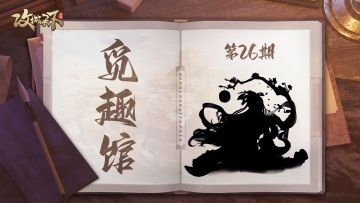 攻城掠地
觅趣馆
第26期